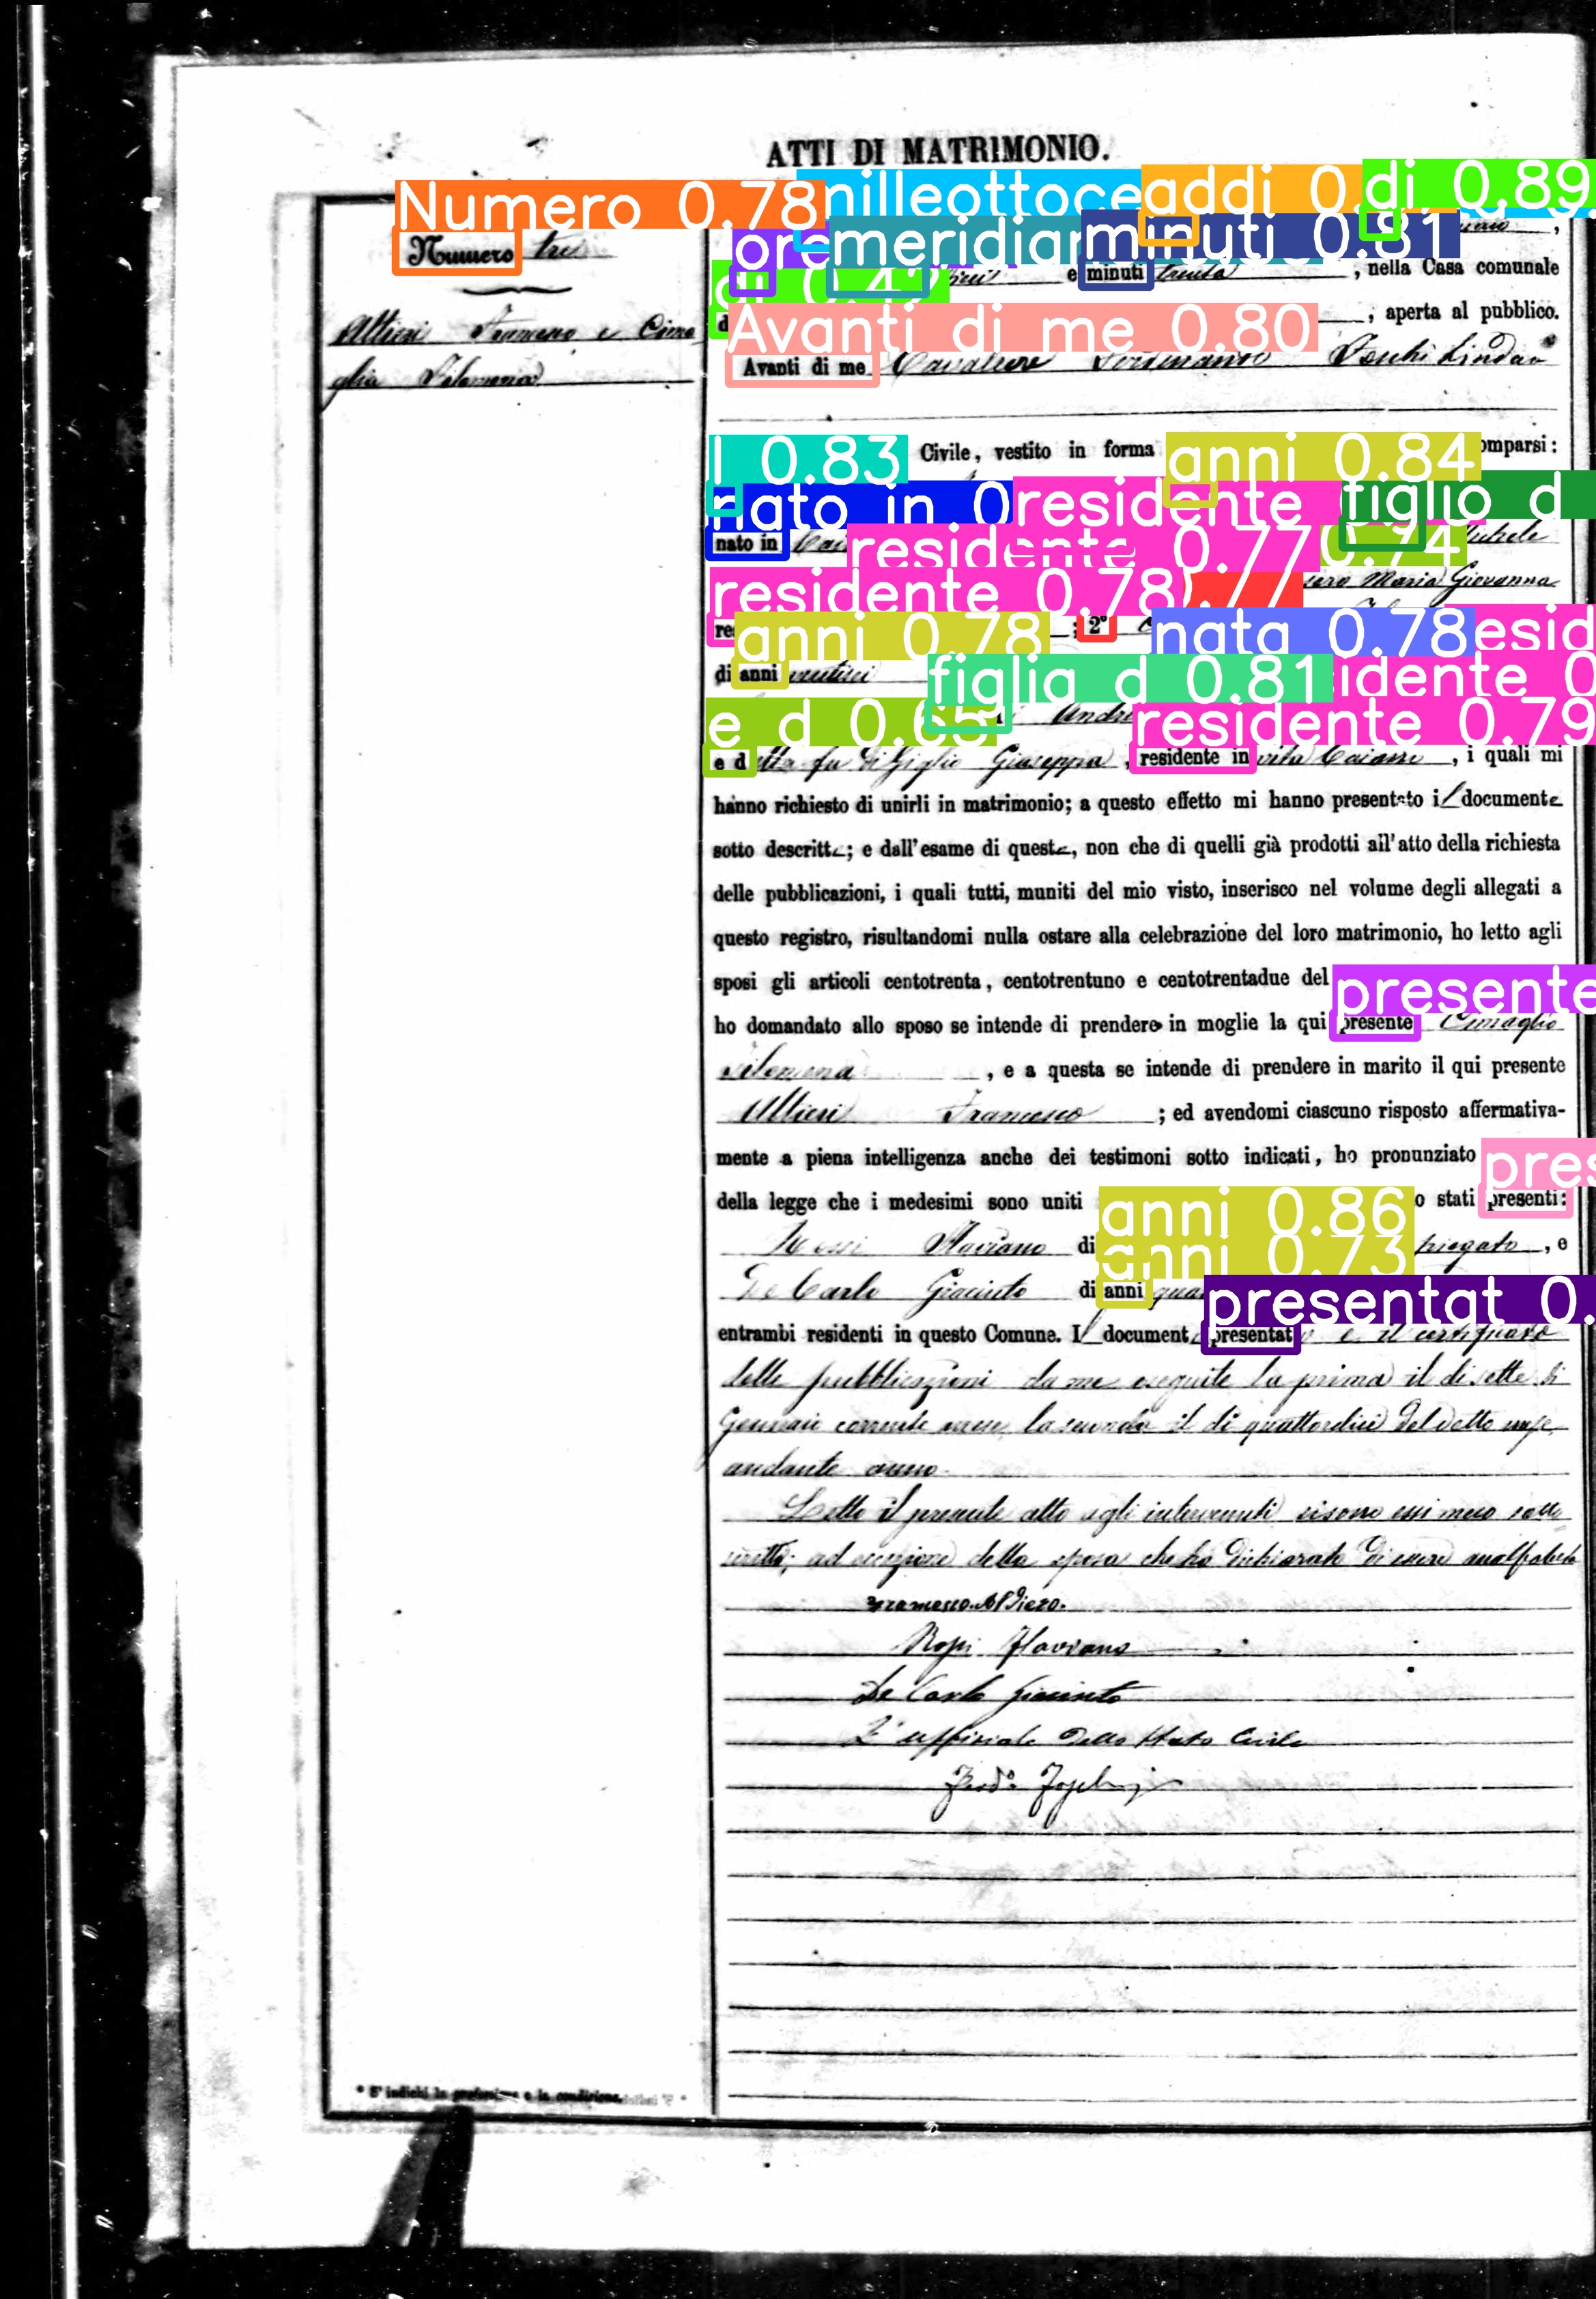 ATTI DI MATRIMONIO.
Numero 0.78
nilleottoce
addi 0.
di 0.89
Numero tre
ore
meridian
minuti 0.81
e minuti trenta, nella Casa comunale
di 0.42
, aperta al pubblico.
Altieri Francesco e Cima
glia Filomena
Avanti di me 0.80
Avanti di me Cavaliere
I 0.83
Civile, vestito in forma
anni 0.84
omparsi:
nato in 0
residente
figlio d
nato in
residente 0.77
0.74
Michele
residente 0.78
0.77
Maria Giovanna
2°
anni 0.78
nata 0.78
esid
di anni
figlia d 0.81
idente 0
e d 0.65
residente 0.79
e d fu Di Giglio Giuseppa, residente in vita, i quali mi
hanno richiesto di unirli in matrimonio; a questo effetto mi hanno presentato il documento
sotto descritto; e dall'esame di questo, non che di quelli già prodotti all'atto della richiesta
delle pubblicazioni, i quali tutti, muniti del mio visto, inserisco nel volume degli allegati a
questo registro, risultandomi nulla ostare alla celebrazione del loro matrimonio, ho letto agli
sposi gli articoli centotrenta, centotrentuno e centotrentadue del
presente
ho domandato allo sposo se intende di prendere in moglie la qui presente Cimaglia
Filomena, e a questa se intende di prendere in marito il qui presente
Altieri Francesco; ed avendomi ciascuno risposto affermativa-
mente a piena intelligenza anche dei testimoni sotto indicati, ho pronunziato
pres
della legge che i medesimi sono uniti
anni 0.86
o stati presenti:
Flaviano di
anni 0.73
piegato, e
De Carlo Giacinto di anni
presentat 0.
entrambi residenti in questo Comune. Il documento presentato è il certificato
delle pubblicazioni da me eseguite la prima il di sette di
Gennaio corrente mese, la seconda il di quattordici del detto mese
andante anno.
Letto il presente atto agli intervenuti si sono essi meco sotto
scritti, ad eccezione della sposa che ha dichiarato di essere analfabeta
Francesco Altiero.
Rossi Flaviano
De Carlo Giacinto
L'uffiziale dello Stato Civile
* S'indichi la professione o la condizione.